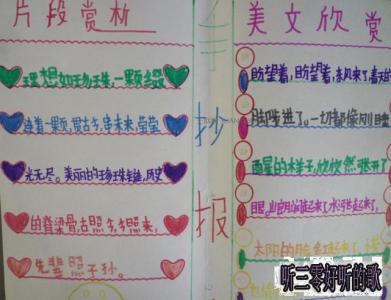 片段赏析
理想如珍珠,一颗缀
连着一颗,贯古今,串未来,莹莹
光无尽。美丽的珍珠链,历史
的脊梁骨,古照今,今照来,
先辈照子孙。
手
抄
报
美文欣赏
盼望着,盼望着,东风来了,春天的
脚步近了。一切都像刚睡
醒的样子,欣欣然张开了
眼。山朗润起来了,水涨起来了,
太阳的脸红起来了。
听三零好听的歌